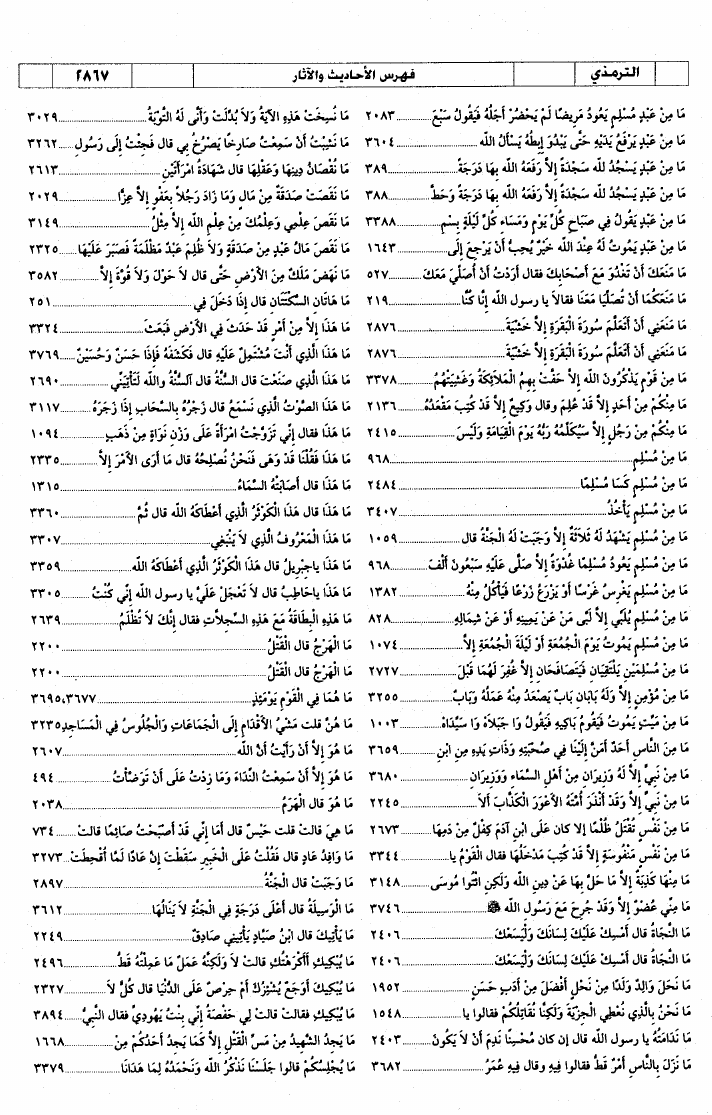 الترمذي فهرس الأحاديث والآثار ٢٨٦٧
مَا مِنْ عَبْدٍ مُسْلِمٍ يَعُودُ مَرِيضًا لَمْ يَحْضُرْ أَجَلُهُ فَيَقُولُ سَبْعَ ٢٠٨٣
مَا مِنْ عَبْدٍ يَرْفَعُ يَدَيْهِ حَتَّى يَبْدُوَ إِبِطُهُ يَسْأَلُ الله ٣٦٠٤
مَا مِنْ عَبْدٍ يَسْجُدُ لله سَجْدَةً إِلاَّ رَفَعَهُ الله بِهَا دَرَجَةً ٣٨٩
مَا مِنْ عَبْدٍ يَسْجُدُ لله سَجْدَةً إِلاَّ رَفَعَهُ الله بِهَا دَرَجَةً وَحَطَّ ٣٨٨
مَا مِنْ عَبْدٍ يَقُولُ فِي صَبَاحِ كُلِّ يَوْمٍ وَمَسَاءِ كُلِّ لَيْلَةٍ بِسْمِ ٣٣٨٨
مَا مِنْ عَبْدٍ يَمُوتُ لَهُ عِنْدَ الله خَيْرٌ يُحِبُّ أَنْ يَرْجِعَ إِلَى ١٦٤٣
مَا مَنَعَكَ أَنْ تَغْدُوَ مَعَ أَصْحَابِكَ فقال أَرَدْتُ أَنْ أُصَلِّيَ مَعَكَ ٥٢٧
مَا مَنَعَكُمَا أَنْ تُصَلِّيَا مَعَنَا فقالاَ يا رسول الله إِنَّا كُنَّا ٢١٩
مَا مَنَعَنِي أَنْ أَتَعَلَّمَ سُورَةَ الْبَقَرَةِ إِلاَّ خَشْيَةَ ٢٨٧٦
مَا مَنَعَنِي أَنْ أَتَعَلَّمَ سُورَةَ الْبَقَرَةِ إِلاَّ خَشْيَةَ ٢٨٧٦
مَا مِنْ قَوْمٍ يَذْكُرُونَ الله إِلاَّ حَفَّتْ بِهِمُ الْمَلاَئِكَةُ وَغَشِيَتْهُمُ ٣٣٧٨
مَا مِنْكُمْ مِنْ أَحَدٍ إِلاَّ قَدْ عُلِمَ وقال وَكِيعٌ إِلاَّ قَدْ كُتِبَ مَقْعَدُهُ ٢١٣٦
مَا مِنْكُمْ مِنْ رَجُلٍ إِلاَّ سَيُكَلِّمُهُ رَبُّهُ يَوْمَ الْقِيَامَةِ وَلَيْسَ ٢٤١٥
مَا مِنْ مُسْلِمٍ ٩٦٨
مَا مِنْ مُسْلِمٍ كَسَا مُسْلِمًا ٢٤٨٤
مَا مِنْ مُسْلِمٍ يَأْخُذُ ٣٤٠٧
مَا مِنْ مُسْلِمٍ يَشْهَدُ لَهُ ثَلاَثَةٌ إِلاَّ وَجَبَتْ لَهُ الْجَنَّةُ قال ١٠٥٩
مَا مِنْ مُسْلِمٍ يَعُودُ مُسْلِمًا غُدْوَةً إِلاَّ صَلَّى عَلَيْهِ سَبْعُونَ أَلْفَ ٩٦٨
مَا مِنْ مُسْلِمٍ يَغْرِسُ غَرْسًا أَوْ يَزْرَعُ زَرْعًا فَيَأْكُلُ مِنْهُ ١٣٨٢
مَا مِنْ مُسْلِمٍ يُلَبِّي إِلاَّ لَبَّى مَنْ عَنْ يَمِينِهِ أَوْ عَنْ شِمَالِهِ ٨٢٨
مَا مِنْ مُسْلِمٍ يَمُوتُ يَوْمَ الْجُمُعَةِ أَوْ لَيْلَةَ الْجُمُعَةِ إِلاَّ ١٠٧٤
مَا مِنْ مُسْلِمَيْنِ يَلْتَقِيَانِ فَيَتَصَافَحَانِ إِلاَّ غُفِرَ لَهُمَا قَبْلَ ٢٧٢٧
مَا مِنْ مُؤْمِنٍ إِلاَّ وَلَهُ بَابَانِ بَابٌ يَصْعَدُ مِنْهُ عَمَلُهُ وَبَابٌ ٣٢٥٥
مَا مِنْ مَيِّتٍ يَمُوتُ فَيَقُومُ بَاكِيهِ فَيَقُولُ وَا جَبَلاَهُ وَا سَيِّدَاهُ ١٠٠٣
مَا مِنَ النَّاسِ أَحَدٌ أَمَنَّ إِلَيْنَا فِي صُحْبَتِهِ وَذَاتِ يَدِهِ مِنِ ابْنِ ٣٦٥٩
مَا مِنْ نَبِيٍّ إِلاَّ لَهُ وَزِيرَانِ مِنْ أَهْلِ السَّمَاءِ وَوَزِيرَانِ ٣٦٨٠
مَا مِنْ نَبِيٍّ إِلاَّ وَقَدْ أَنْذَرَ أُمَّتَهُ الأَعْوَرَ الْكَذَّابَ أَلاَ ٢٢٤٥
مَا مِنْ نَفْسٍ تُقْتَلُ ظُلْمًا إِلا كان عَلَى ابْنِ آدَمَ كِفْلٌ مِنْ دَمِهَا ٢٦٧٣
مَا مِنْ نَفْسٍ مَنْفُوسَةٍ إِلاَّ قَدْ كُتِبَ مَدْخَلُهَا فقال الْقَوْمُ يا ٣٣٤٤
مَا مِنْهَا كَذِبَةٌ إِلاَّ مَا حَلَّ بِهَا عَنْ دِينِ الله وَلَكِنِ ائْتُوا مُوسَى ٣١٤٨
مَا مِنِّي عُضْوٌ إِلاَّ وَقَدْ جُرِحَ مَعَ رَسُولِ الله ﷺ ٣٧٤٦
مَا النَّجَاةُ قال أَمْسِكْ عَلَيْكَ لِسَانَكَ وَلْيَسَعْكَ ٢٤٠٦
مَا النَّجَاةُ قال أَمْسِكْ عَلَيْكَ لِسَانَكَ وَلْيَسَعْكَ ٢٤٠٦
مَا نَحَلَ وَالِدٌ وَلَدًا مِنْ نَحْلٍ أَفْضَلَ مِنْ أَدَبٍ حَسَنٍ ١٩٥٢
مَا نَحْنُ بِالَّذِي نُعْطِي الْجِزْيَةَ وَلَكِنَّا نُقَاتِلُكُمْ فقالوا يا ١٥٤٨
مَا نَدَامَتُهُ يا رسول الله قال إن كان مُحْسِنًا نَدِمَ أَنْ لاَ يَكُونَ ٢٤٠٣
مَا نَزَلَ بِالنَّاسِ أَمْرٌ قَطُّ فقالوا فِيهِ وقال فِيهِ عُمَرُ ٣٦٨٢
مَا نُسِخَتْ هَذِهِ الآيَةُ وَلاَ بُدِّلَتْ وَأَنَّى لَهُ التَّوْبَةُ ٣٠٢٩
مَا نَشِبْتُ أَنْ سَمِعْتُ صَارِخًا يَصْرُخُ بِي قال فَجِئْتُ إِلَى رَسُولِ ٣٢٦٢
مَا نُقْصَانُ دِينِهَا وَعَقْلِهَا قال شَهَادَةُ امْرَأَتَيْنِ ٢٦١٣
مَا نَقَصَتْ صَدَقَةٌ مِنْ مَالٍ وَمَا زَادَ رَجُلاً بِعَفْوٍ إِلاَّ عِزًّا ٢٠٢٩
مَا نَقَصَ عِلْمِي وَعِلْمُكَ مِنْ عِلْمِ الله إِلاَّ مِثْلُ ٣١٤٩
مَا نَقَصَ مَالُ عَبْدٍ مِنْ صَدَقَةٍ وَلاَ ظُلِمَ عَبْدٌ مَظْلَمَةً فَصَبَرَ عَلَيْهَا ٢٣٢٥
مَا نَهَضَ مَلَكٌ مِنَ الأَرْضِ حَتَّى قال لاَ حَوْلَ وَلاَ قُوَّةَ إِلاَّ ٣٥٨٢
مَا هَاتَانِ السَّكْتَتَانِ قال إِذَا دَخَلَ فِي ٢٥١
مَا هَذَا إِلاَّ مِنْ أَمْرٍ قَدْ حَدَثَ فِي الأَرْضِ فَبَعَثَ ٣٣٢٤
مَا هَذَا الَّذِي أَنْتَ مُشْتَمِلٌ عَلَيْهِ قال فَكَشَفَهُ فَإِذَا حَسَنٌ وَحُسَيْنٌ ٣٧٦٩
مَا هَذَا الَّذِي صَنَعْتَ قال السُّنَّةُ قال آلسُّنَّةُ والله لَتَأْتِيَنِّي ٢٦٩٠
مَا هَذَا الصَّوْتُ الَّذِي نَسْمَعُ قال زَجْرُهُ بِالسَّحَابِ إِذَا زَجَرَهُ ٣١١٧
مَا هَذَا فقال إِنِّي تَزَوَّجْتُ امْرَأَةً عَلَى وَزْنِ نَوَاةٍ مِنْ ذَهَبٍ ١٠٩٤
مَا هَذَا فَقُلْنَا قَدْ وَهَى فَنَحْنُ نُصْلِحُهُ قال مَا أَرَى الأَمْرَ إِلاَّ ٢٣٣٥
مَا هَذَا قال أَصَابَتْهُ السَّمَاءُ ١٣١٥
مَا هَذَا قال هَذَا الْكَوْثَرُ الَّذِي أَعْطَاكَهُ الله قال ثُمَّ ٣٣٦٠
مَا هَذَا الْمَعْرُوفُ الَّذِي لاَ يَنْبَغِي ٣٣٠٧
مَا هَذَا ياجِبْرِيلُ قال هَذَا الْكَوْثَرُ الَّذِي أَعْطَاكَهُ الله ٣٣٥٩
مَا هَذَا ياحَاطِبُ قال لاَ تَعْجَلْ عَلَيَّ يا رسول الله إِنِّي كُنْتُ ٣٣٠٥
مَا هَذِهِ الْبِطَاقَةُ مَعَ هَذِهِ السِّجِلاَّتِ فقال إِنَّكَ لاَ تُظْلَمُ ٢٦٣٩
مَا الْهَرْجُ قال الْقَتْلُ ٢٢٠٠
مَا الْهَرْجُ قال الْقَتْلُ ٢٢٠٠
مَا هُمَا فِي الْقَوْمِ يَوْمَئِذٍ ٣٦٩٥،٣٦٧٧
مَا هُنَّ قلت مَشْيُ الأَقْدَامِ إِلَى الْجَمَاعَاتِ وَالْجُلُوسُ فِي الْمَسَاجِدِ ٣٢٣٥
مَا هُوَ إِلاَّ أَنْ رَأَيْتُ أَنَّ الله ٢٦٠٧
مَا هُوَ إِلاَّ أَنْ سَمِعْتُ النِّدَاءَ وَمَا زِدْتُ عَلَى أَنْ تَوَضَّأْتُ ٤٩٤
مَا هُوَ قال الْهَرَمُ ٢٠٣٨
مَا هِيَ قالتْ قلت حَيْسٌ قال أَمَا إِنِّي قَدْ أَصْبَحْتُ صَائِمًا قالتْ ٧٣٤
مَا وَافِدُ عَادٍ قال فَقُلْتُ عَلَى الْخَبِيرِ سَقَطْتَ إِنَّ عَادًا لَمَّا أُقْحِطَتْ ٣٢٧٣
مَا وَجَبَتْ قال الْجَنَّةُ ٢٨٩٧
مَا الْوَسِيلَةُ قال أَعْلَى دَرَجَةٍ فِي الْجَنَّةِ لاَ يَنَالُهَا ٣٦١٢
مَا يَأْتِيكَ قال ابْنُ صَيَّادٍ يَأْتِينِي صَادِقٌ ٢٢٤٩
مَا يُبْكِيكِ أَأَكْرَهْتُكِ قالتْ لاَ وَلَكِنَّهُ عَمَلٌ مَا عَمِلْتُهُ قَطُّ ٢٤٩٦
مَا يُبْكِيكَ أَوَجَعٌ يُشْئِزُكَ أَمْ حِرْصٌ عَلَى الدُّنْيَا قال كُلٌّ لاَ ٢٣٢٧
مَا يُبْكِيكِ فقالتْ قالتْ لِي حَفْصَةُ إِنِّي بِنْتُ يَهُودِيٍّ فقال النَّبِيُّ ٣٨٩٤
مَا يَجِدُ الشَّهِيدُ مِنْ مَسِّ الْقَتْلِ إِلاَّ كَمَا يَجِدُ أَحَدُكُمْ مِنْ ١٦٦٨
مَا يُجْلِسُكُمْ قالوا جَلَسْنَا نَذْكُرُ الله وَنَحْمَدُهُ لِمَا هَدَانَا ٣٣٧٩